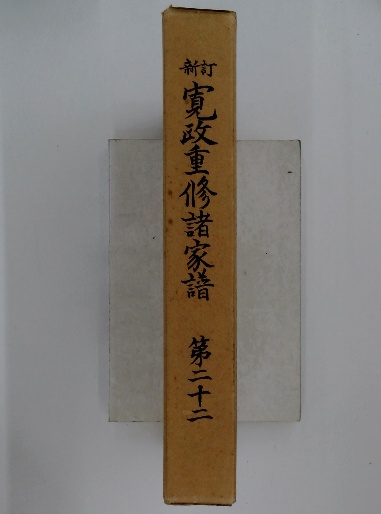 新訂
寛政重修諸家譜
第二十二